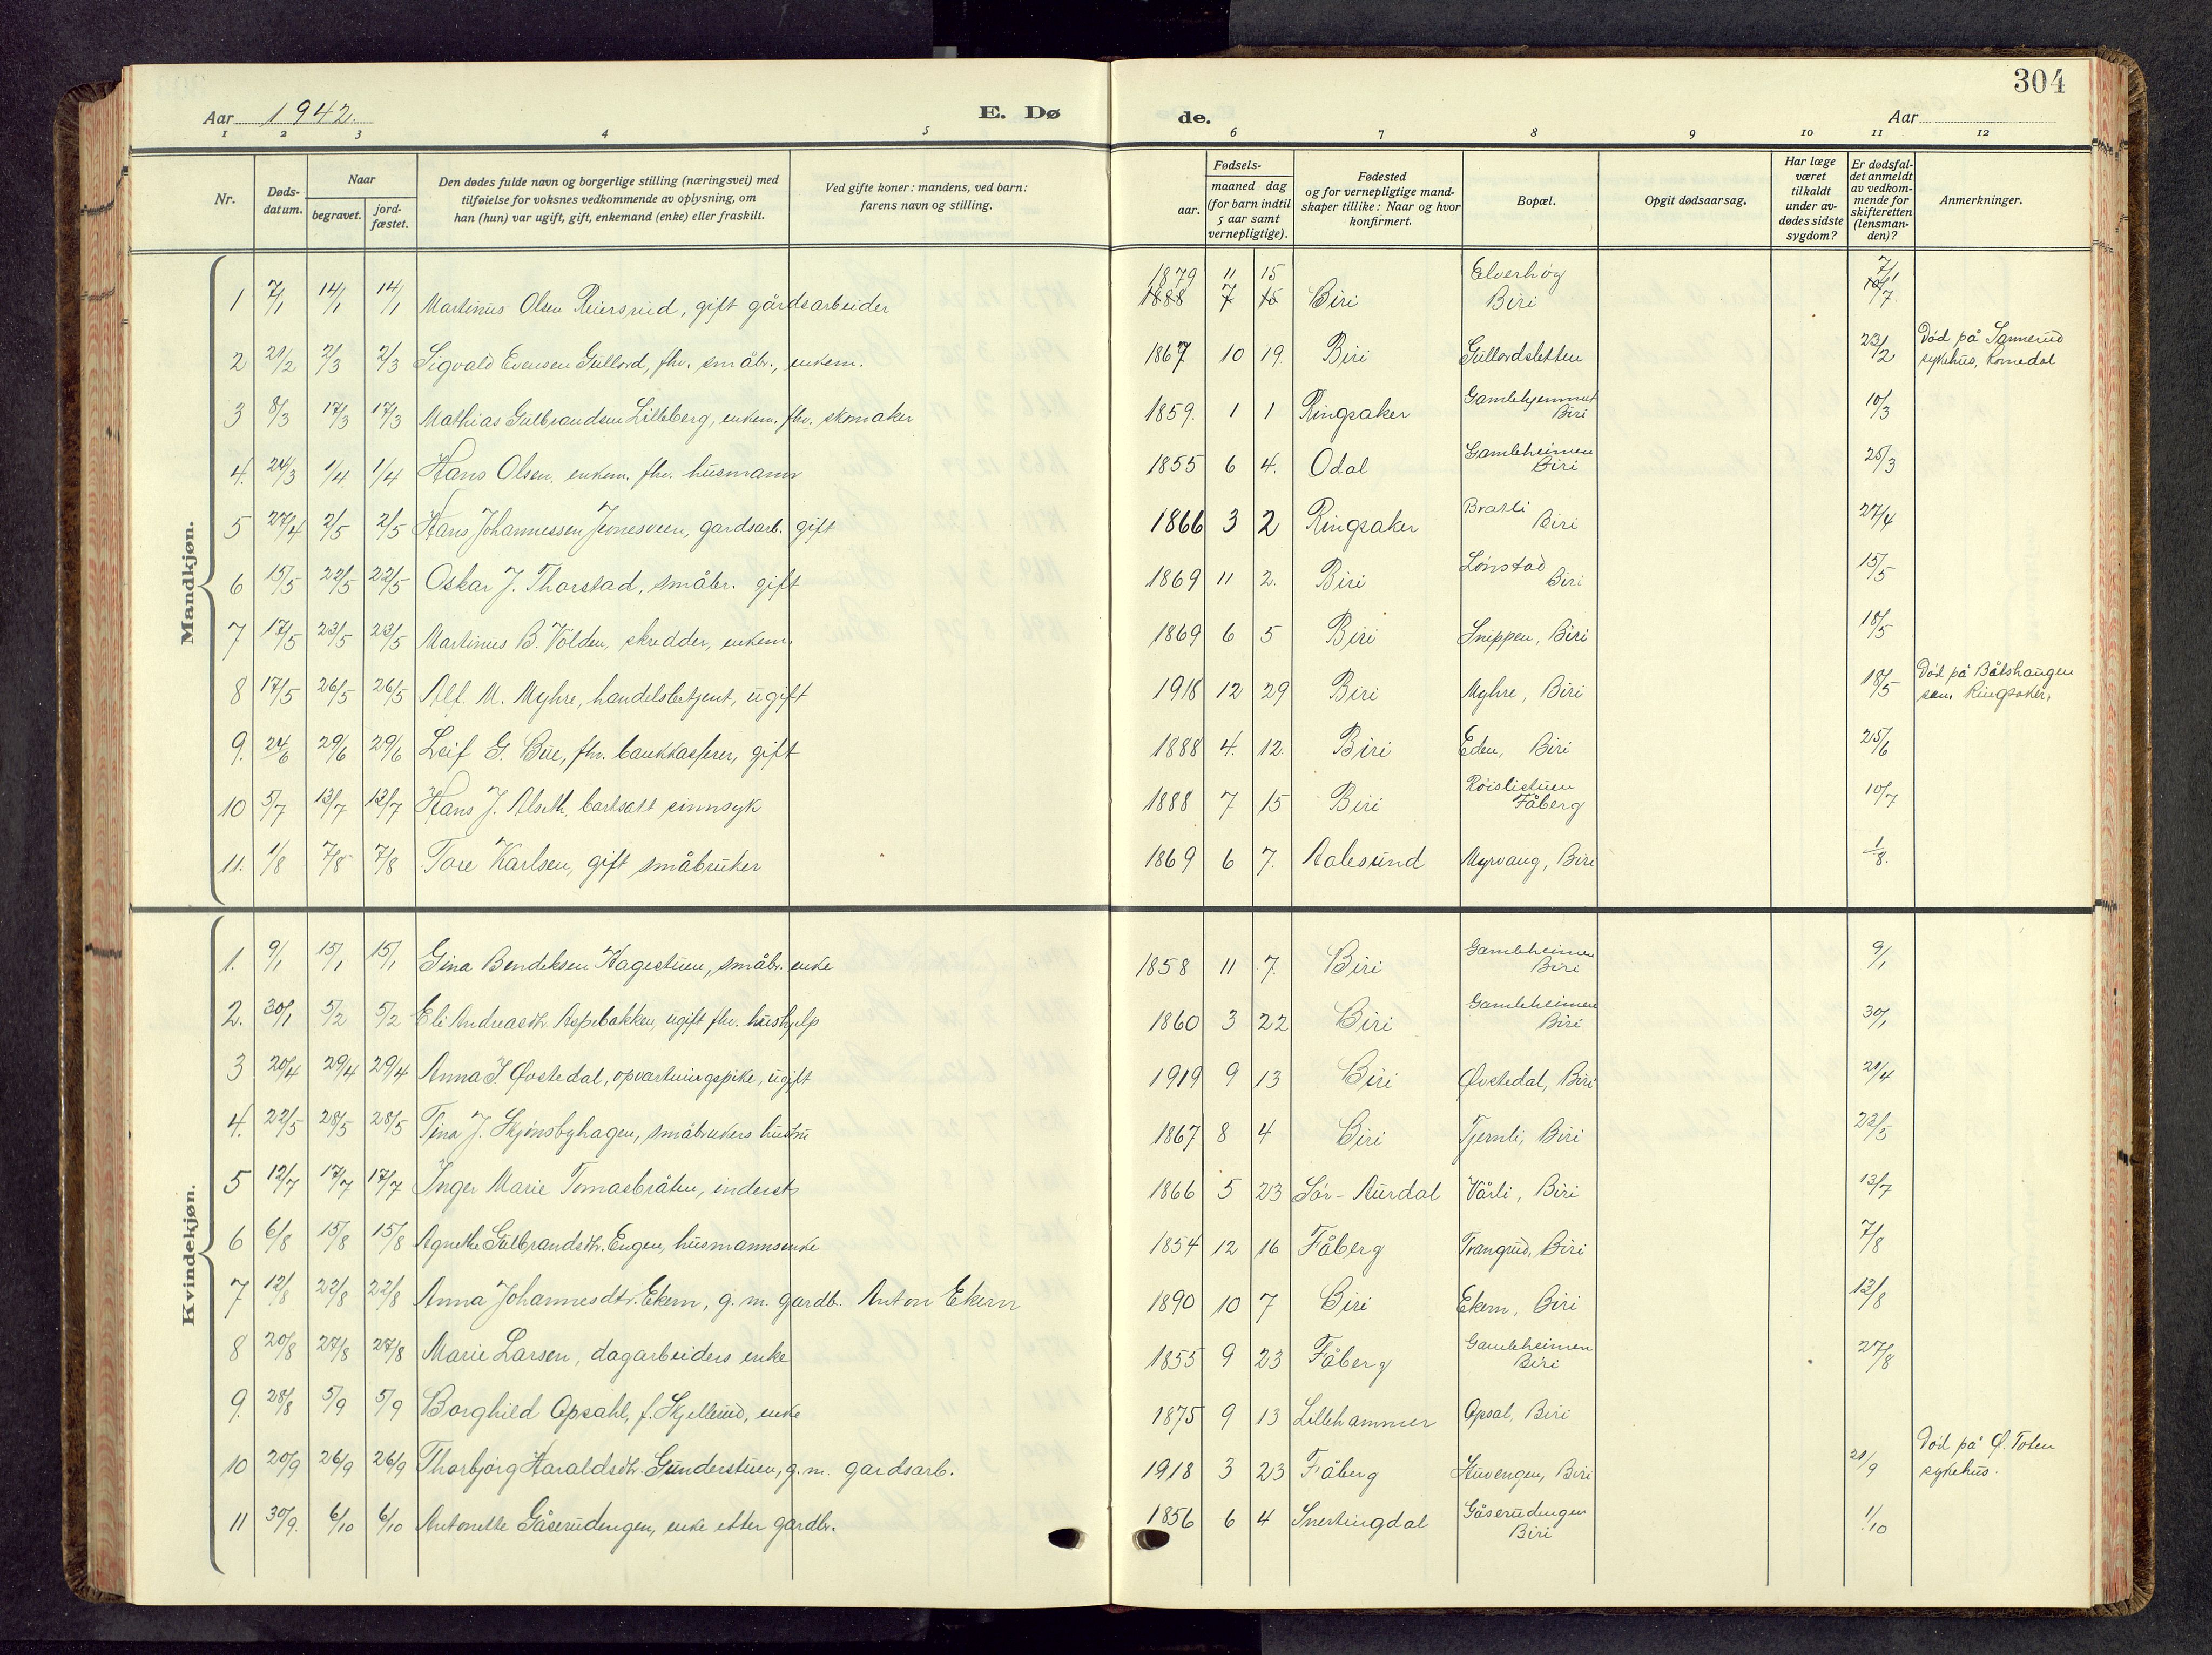 304
Aar 1942.
E. Dø de.
Aar
1 2 3 4 5 6 7 8 9 10 11 12
Nr.
Døds-
datum.
Naar
begravet.
jord-
fæstet.
Den dødes fulde navn og borgerlige stilling (næringsvei) med
tilføielse for voksnes vedkommende av oplysning, om
han (hun) var ugift, gift, enkemand (enke) eller fraskilt.
Ved gifte koner: mandens, ved barn:
farens navn og stilling.
Fødsels-
aar.
maaned dag
(for barn indtil
5 aar samt
vernepligtige).
Fødested
og for vernepligtige mand-
skaper tillike: Naar og hvor
konfirmert.
Bopæl.
Opgit dødsaarsag.
Har læge
været
tilkaldt
under av-
dødes sidste
sygdom?
Er dødsfal-
det anmeldt
av vedkom-
mende for
skifteretten
(lensman-
den)?
Anmerkninger.
Mandkjøn.
1879 11 15 Elverhøg 7/1
1 7/1 14/1 14/1 Martinus Olsen Reiersrud, gift gårdsarbeider 1888 7 15 Biri Biri
2 21/2 2/3 2/3 Sigvald Evensen Gullord, fhv. småbr., enkem. 1867 10 19. Biri Gullordsletten 23/2 Død på Sannerud
sykehus, Romedal
3 8/3 17/3 17/3 Mathias Gulbrandsen Lilleberg, enkem. fhv. skomaker 1859. 1 1 Ringsaker Gamlehjemmet
Biri 10/3
4. 24/3 1/4 1/4 Hans Olsen, enkem. fhv. husmann 1855 6 4. Odal Gamleheimen
Biri 25/3
5 27/4 2/5 2/5 Hans Johannessen Jonesveen, gardsarb. gift 1866 3 2 Ringsaker Brasli
Biri 27/4
6 15/5 22/5 22/5 Oskar J. Thorstad, småbr. gift 1869 11 2. Biri Lønstad
Biri 15/5
7 17/5 23/5 23/5 Martinus B. Volden, skredder, enkem. 1869 6 5 Biri Snippen, Biri 18/5
8 17/5 26/5 26/5 Alf. M. Myhre, handelsbetjent, ugift 1918 12 29 Biri Myhre, Biri 18/5 Død på Båtshaugen
san. Ringsaker,
9. 24/6 29/6 29/6 Leif G. Bue, fhv. bankkasserer, gift 1888 4. 12. Biri Eden, Biri 25/6
10 5/7 13/7 13/7 Hans J. Alseth, bortsatt sinnsyk 1888 7 15 Biri Røislistuen
Fåberg 10/7
11. 1/8 7/8 7/8 Tore Karlsen, gift småbruker 1869 6 7. Aalesund Myrvang, Biri 1/8.
Kvindekjøn.
1. 9/1 15/1 15/1 Gina Bendiksen Hagestuen, småbr. enke 1858 11 7. Biri Gamleheimen
Biri 9/1
2. 30/1 5/2 5/2 Eli Andreasdtr. Aspebakken, ugift fhv. hushjelp 1860 3 22 Biri Gamleheimen
Biri 30/1
3 20/4 29/4 29/4 Anna J. Øvstedal, opvartningspike, ugift 1919 9 13 Biri Øvstedal, Biri 21/4
4. 22/5 28/5 28/5 Tina J. Skjønsbyhagen, småbrukers hustru 1867 8 4 Biri Tjernli, Biri 23/5
5 12/7 17/7 17/7 Inger Marie Tomasbråten, inderst 1866 5 23 Sør-Aurdal Vårli, Biri 13/7
6 6/8 15/8 15/8 Agnethe Gulbrandsdtr. Engen, husmannsenke 1854 12 16 Fåberg Trangrud, Biri 7/8
7 12/8 22/8 22/8 Anna Johannesdtr. Ekern, g. m. gardb. Anton Ekern 1890 10 7 Biri Ekern, Biri 13/8
8 20/8 27/8 27/8 Marie Larsen, dagarbeiders enke 1855 9 23 Fåberg Gamleheimen
Biri 27/8
9. 28/8 5/9 5/9 Borghild Opsahl, f. Skjellerud, enke 1875 9 13 Lillehammer Opsal, Biri
10 20/9 26/9 26/9 Thorbjørg Haraldsdtr. Gunderstuen, g. m. gardsarb. 1918 3 23 Fåberg Huvengen, Biri 21/9 Død på Ø. Toten
sykehus.
11 30/9. 6/10 6/10 Antonette Gåserudengen, enke etter gardbr. 1856 6 4 Snertingdal Gåserudengen
Biri 1/10